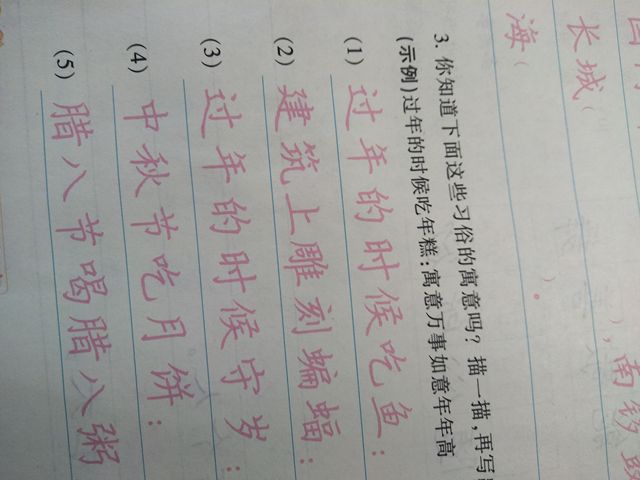 长城(
海(
)。
),南
3. 你知道下面这些习俗的寓意吗?描一描,再写
(示例)过年的时候吃年糕:寓意万事如意年年高
(1) 过年的时候吃鱼:
(2) 建筑上雕刻蝙蝠:
(3) 过年的时候守岁:
(4) 中秋节吃月饼:
(5) 腊八节喝腊八粥